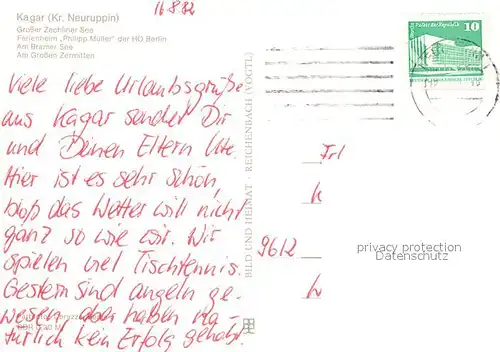 16.8.82
Kagar (Kr. Neuruppin)
Großer Zechliner See
Ferienheim „Philipp Müller" der HO Berlin
Am Bramer See
Am Großen Zermitten
10
Palast der Republik
Viele liebe Urlaubsgrüße
aus Kagar sendet Dir
und Deinen Eltern Ute.
Hier ist es sehr schön,
bloß das Wetter will nicht
ganz so wie wir. Wir
spielen viel Tischtennis.
Gestern sind angeln ge-
wesen aber haben na-
türlich kein Erfolg gehabt.
BILD UND HEIMAT · REICHENBACH (VOGTL)
Frl
9612
privacy protection
Datenschutz